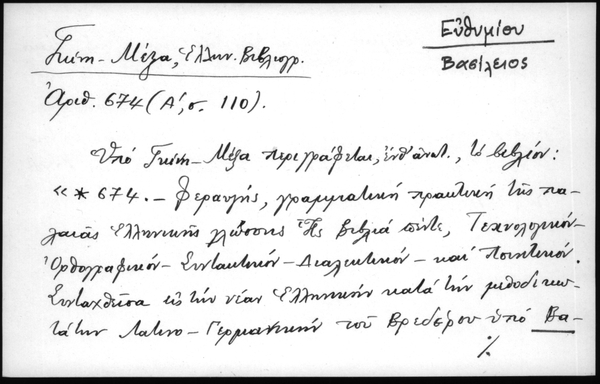 Εὐθυμίου
Βασίλειος
Γκίνη - Μέξα, Ἑλλην. Βιβλιογρ.
Ἀριθ. 674 (Α', σ. 110).
Ὑπό Γκίνη - Μέξα περιγράφεται, ἔνθ' ἀνωτ., τό βιβλίον:
«*674. - Φεραυγής, γραμματική πρακτική τῆς πα-
λαιᾶς Ἑλληνικῆς γλώσσης Εἰς βιβλία πέντε, Τεχνολογικόν -
Ὀρθογραφικόν - Συντακτικόν - Διαλεκτικόν - καί Ποιητικόν.
Συνταχθεῖσα εἰς τήν νέαν Ἑλληνικήν κατά τήν μεθοδικω-
τάτην Λατινο - Γερμανικήν τοῦ Βρεδέρου ὑπό Βα-
%